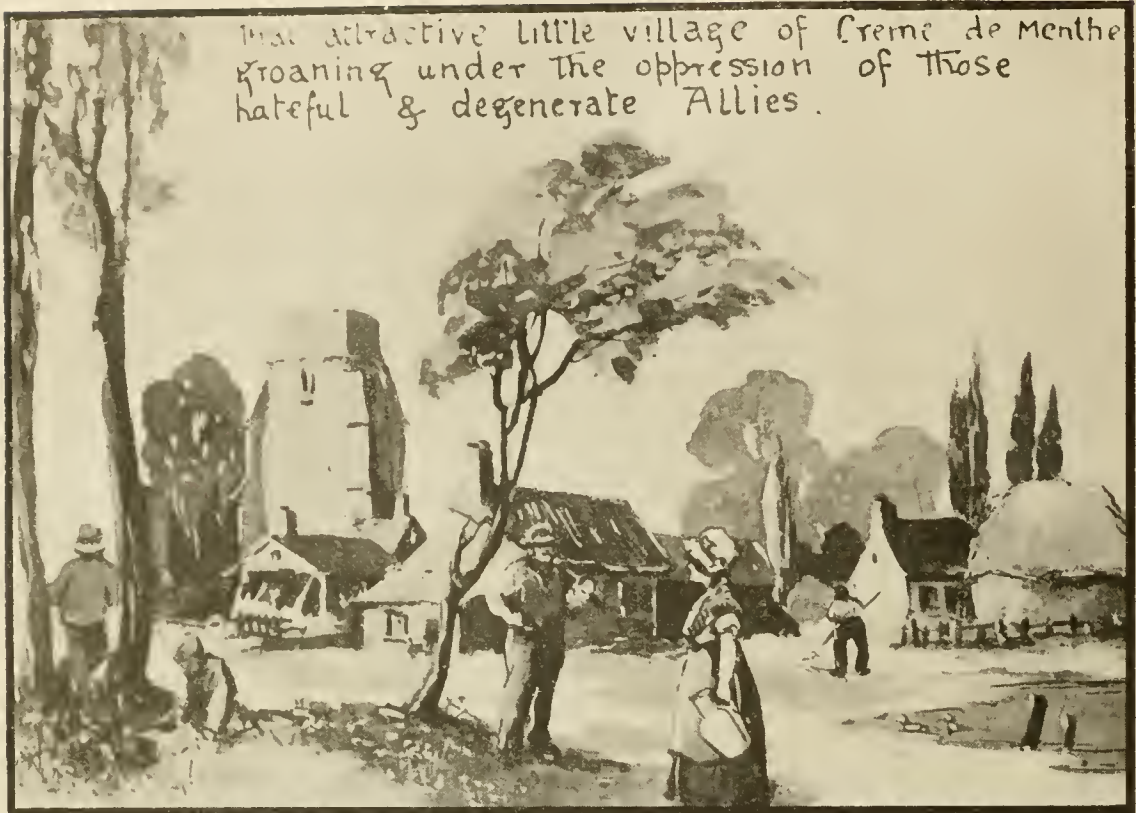 That attractive little village of Creme de Menthe
groaning under the oppression of those
hateful & degenerate Allies.